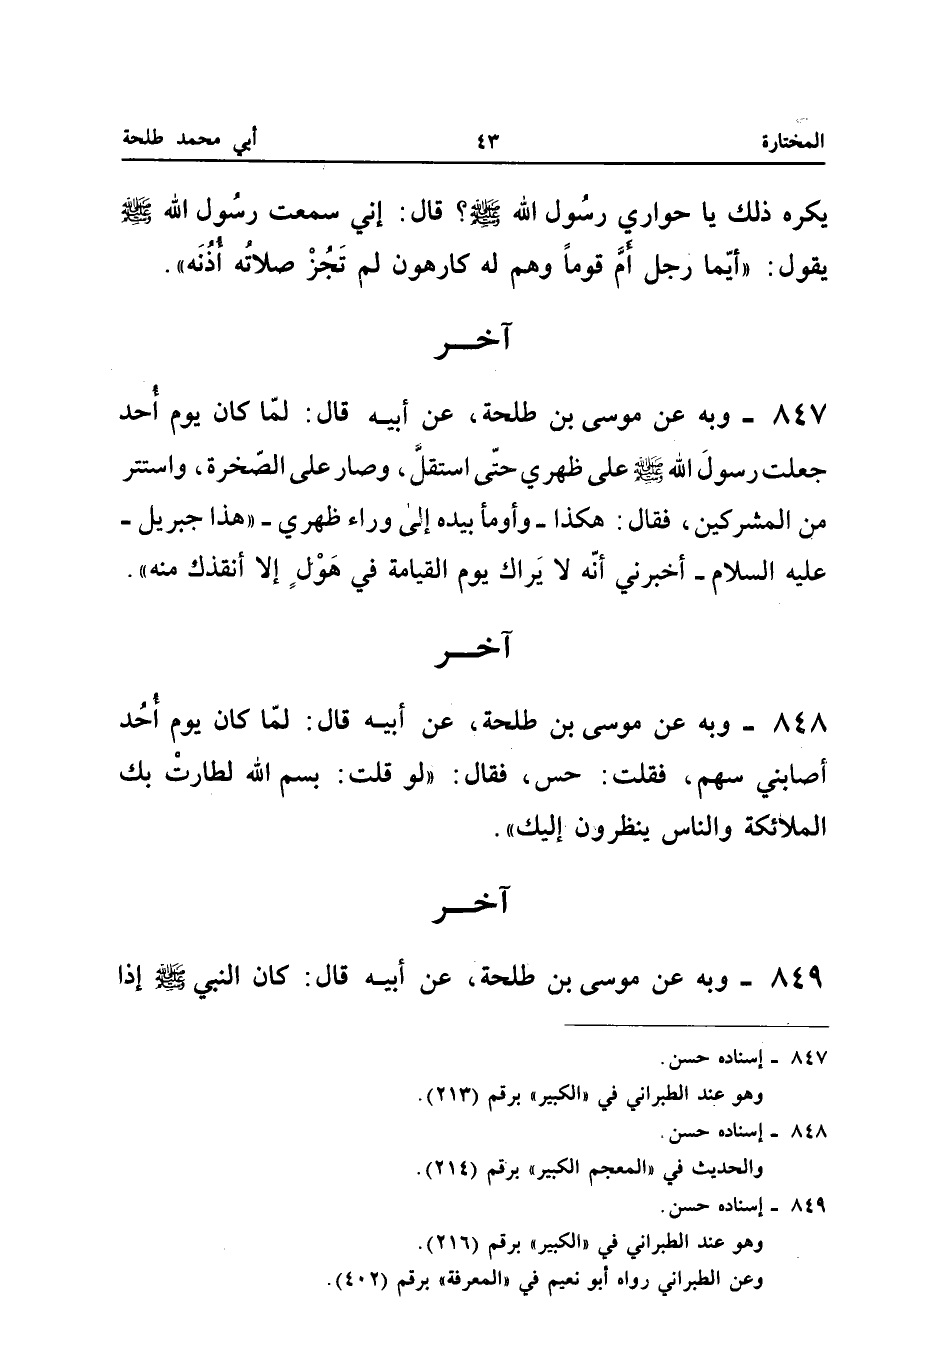 المختارة ٤٣ أبي محمد طلحة
يكره ذلك يا حواري رسُول الله ﷺ؟ قال: إني سمعت رسُول الله ﷺ
يقول: «أيّما رجل أَمَّ قوماً وهم له كارهون لم تَجُزْ صلاتُه أُذُنَه».
آخـــر
٨٤٧ ـ وبه عن موسى بن طلحة، عن أبيـه قال: لمّا كان يوم أُحد
جعلت رسولَ الله ﷺ على ظهري حتّى استقلَّ، وصار على الصّخرة، واستتر
من المشركين، فقال: هكذا ـ وأومأ بيده إلىٰ وراء ظهري ـ «هذا جبريل ـ
عليه السلام ـ أخبرني أنّه لا يَراك يوم القيامة في هَوْلٍ إلا أنقذك منه».
آخـــر
٨٤٨ ـ وبه عن موسى بن طلحة، عن أبيـه قال: لمّا كان يوم أُحُد
أصابني سهم، فقلت: حس، فقال: «لو قلت: بسم الله لطارتْ بك
الملائكة والناس ينظرون إليك».
آخـــر
٨٤٩ ـ وبه عن موسى بن طلحة، عن أبيـه قال: كان النبي ﷺ إذا
٨٤٧ ـ إسناده حسن.
وهو عند الطبراني في «الكبير» برقم (٢١٣).
٨٤٨ ـ إسناده حسن.
والحديث في «المعجم الكبير» برقم (٢١٤).
٨٤٩ ـ إسناده حسن.
وهو عند الطبراني في «الكبير» برقم (٢١٦).
وعن الطبراني رواه أبو نعيم في «المعرفة» برقم (٤٠٢).